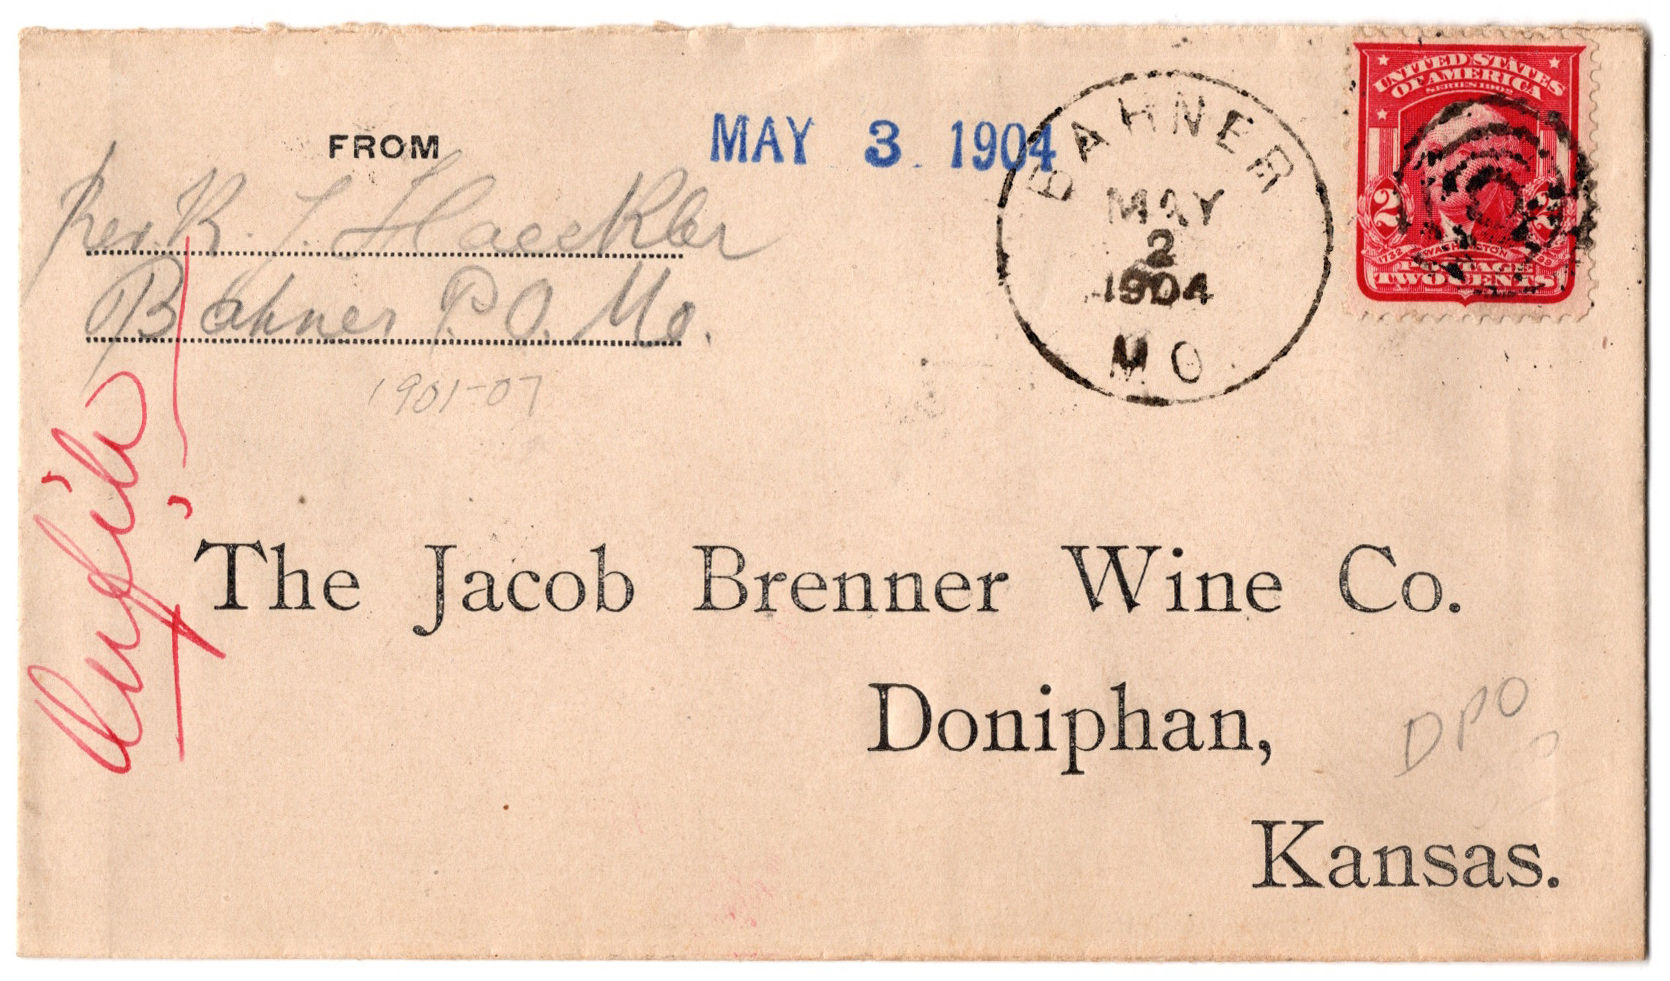 FROM
Rev. R. J. Haeckler
Bahner P.O. Mo.
1901-07
MAY 3 1904
BAHNER
MAY
2
1904
MO
UNITED STATES
OF AMERICA
SERIES 1902
2 2
1732 WASHINGTON
POSTAGE
TWO CENTS
The Jacob Brenner Wine Co.
Doniphan,
Kansas.
DPO